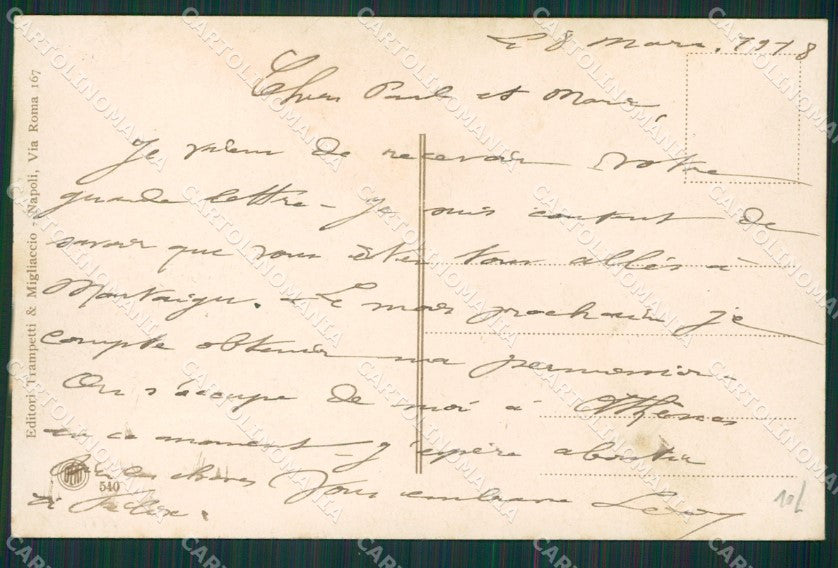 Le 8 Mars 1918
Cher Paul et Marie,
Je viens de recevoir votre
grande lettre - Je suis content de
savoir que vous êtes tous allés à
Montaigu. - Le mois prochain je
compte obtenir ma permission -
On s'occupe de moi à Athènes
en ce moment - J'espère aboutir
les choses Vous embrasse
et Félix.
Editori Trampetti & Migliaccio - Napoli, Via Roma 167
540
CARTOLINOMANIA